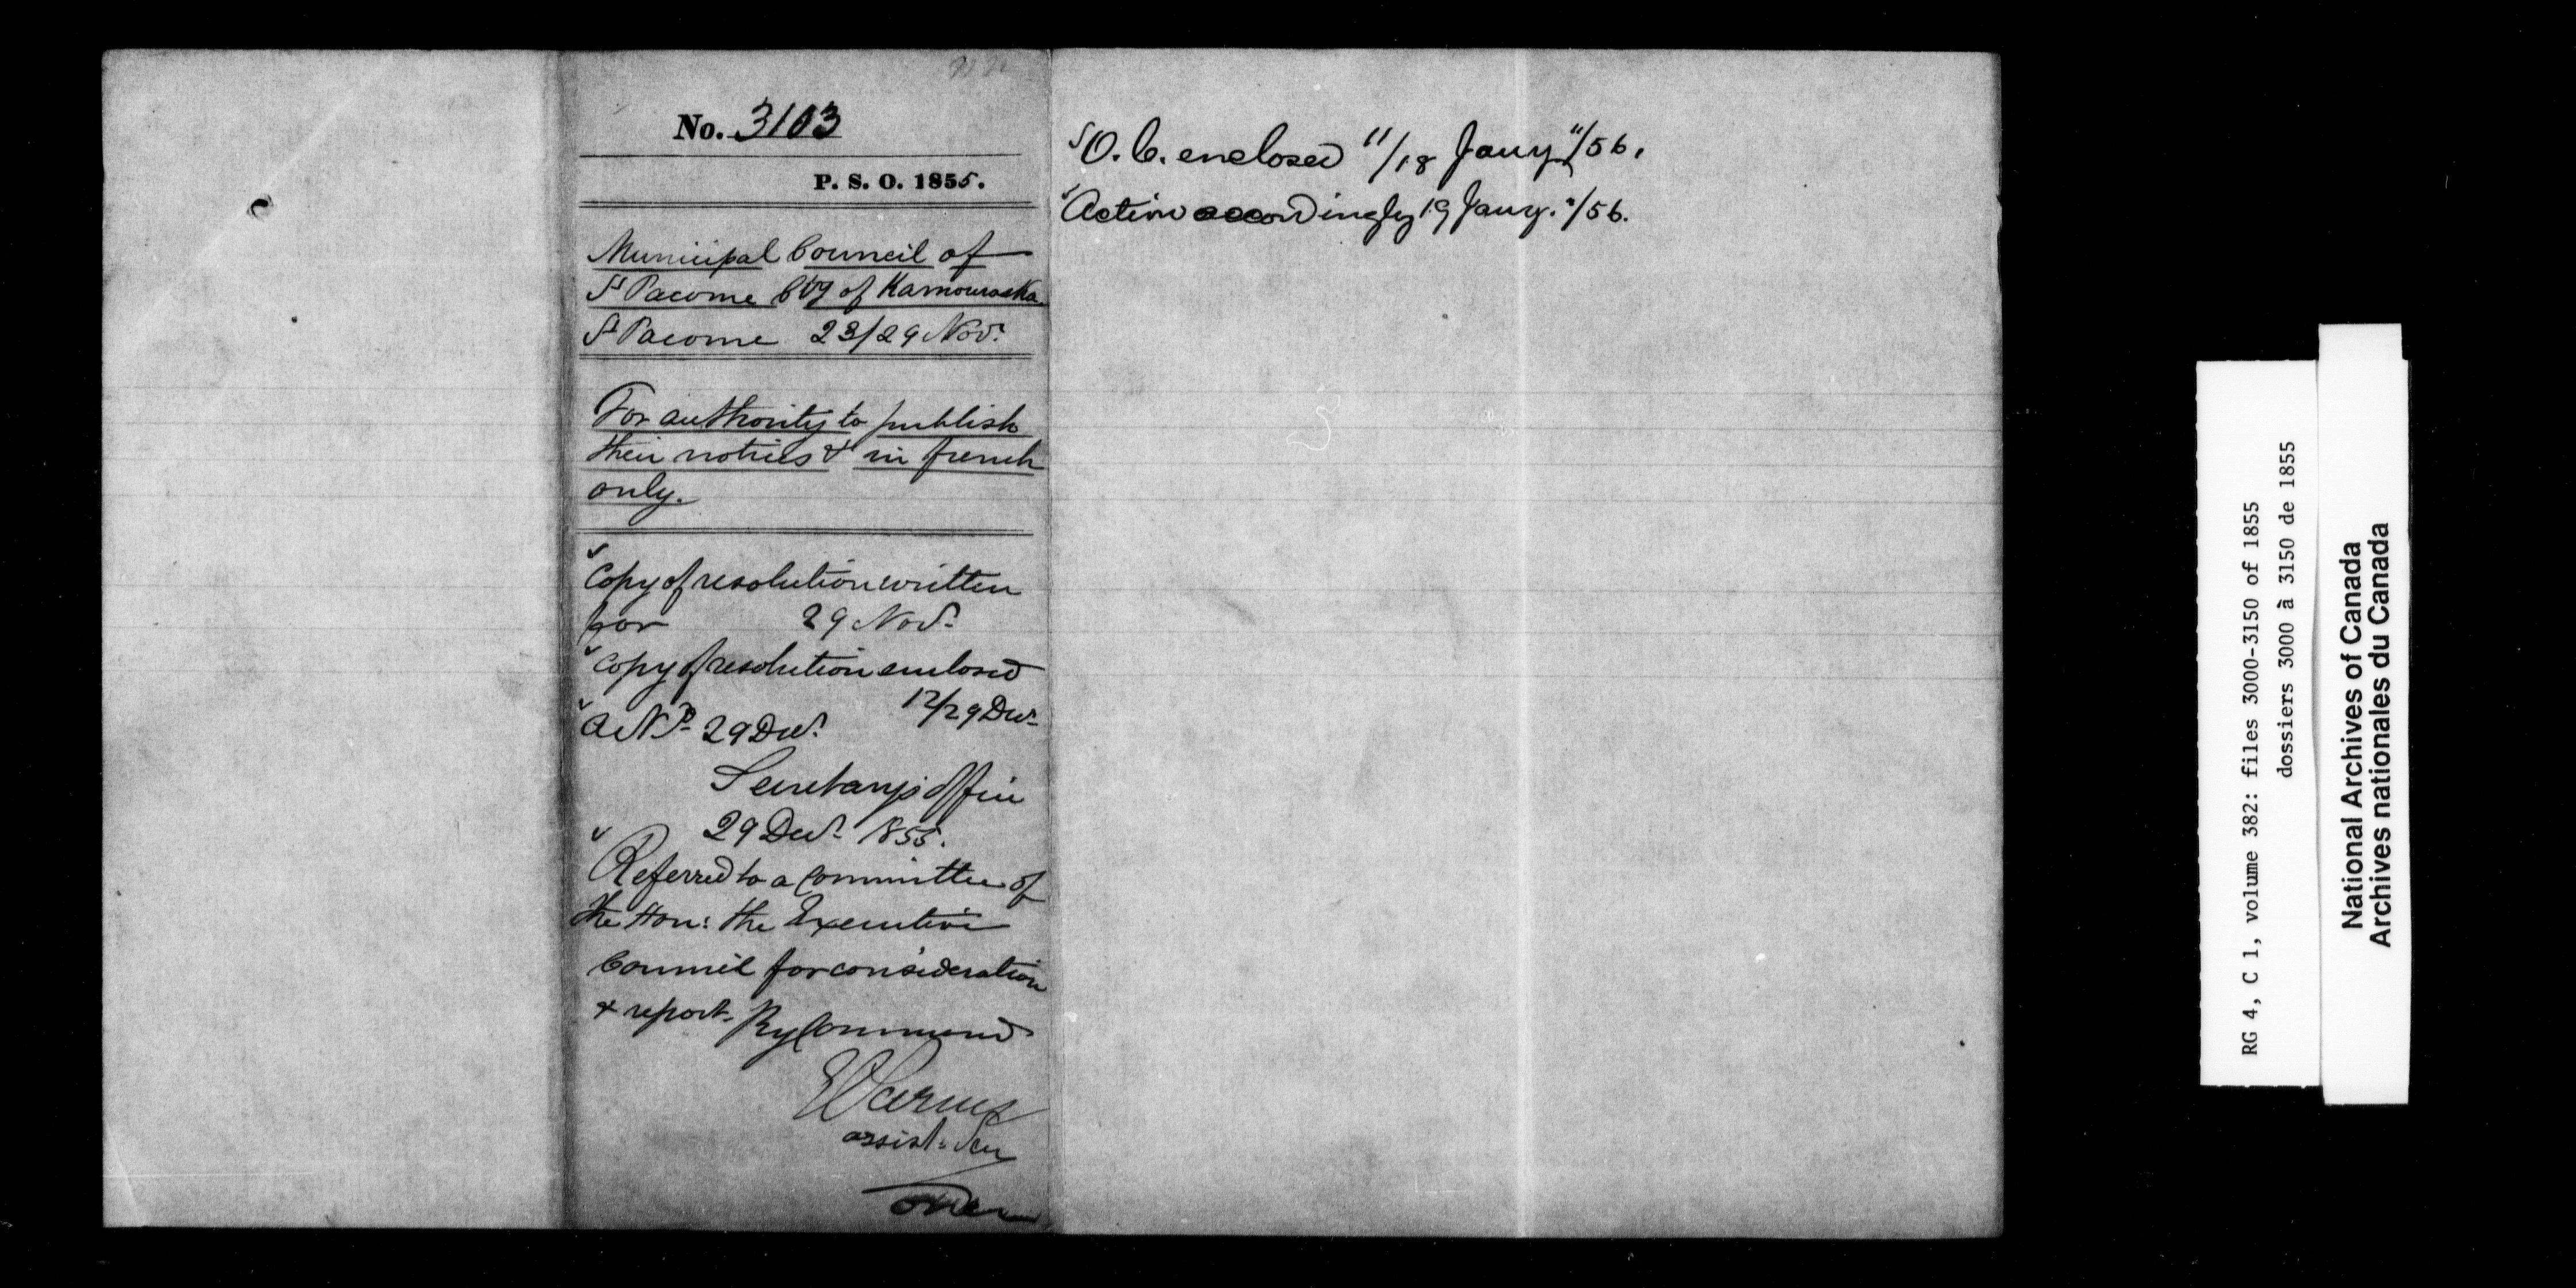 No. 3103
P. S. O. 1855.
Municipal Council of
St Pacome Cty of Kamouraska
St Pacome 23/29 Novr.
For authority to publish
their notices &c in french
only.
Copy of resolution written
for 29 Novr.
Copy of resolution enclosed
12/29 Decr.
29 Decr.
Secretary's Office
29 Decr. 1855.
Referred to a Committee of
the Hon: the Executive
Council for consideration
& report. By Command
assist: Sec
over
O. C. enclosed 11/18 Jany "/56.
Action accordingly 19 Jany. "/56.
RG 4, C 1, volume 382: files 3000-3150 of 1855
dossiers 3000 à 3150 de 1855
National Archives of Canada
Archives nationales du Canada